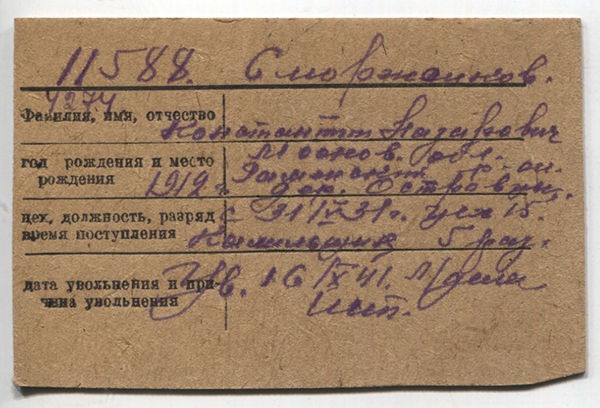 11588. Сморжанков.
4274
Фамилия, имя, отчество
Константин Назарович
год рождения и место рождения
Москов. обл.
Раменский р-он.
1912 г. дер. Островцы.
цех, должность, разряд
время поступления
с 31/V 31 г. цех 15.
5 раз.
дата увольнения и при-
чина увольнения
Ув. 16/X 41. л/дела